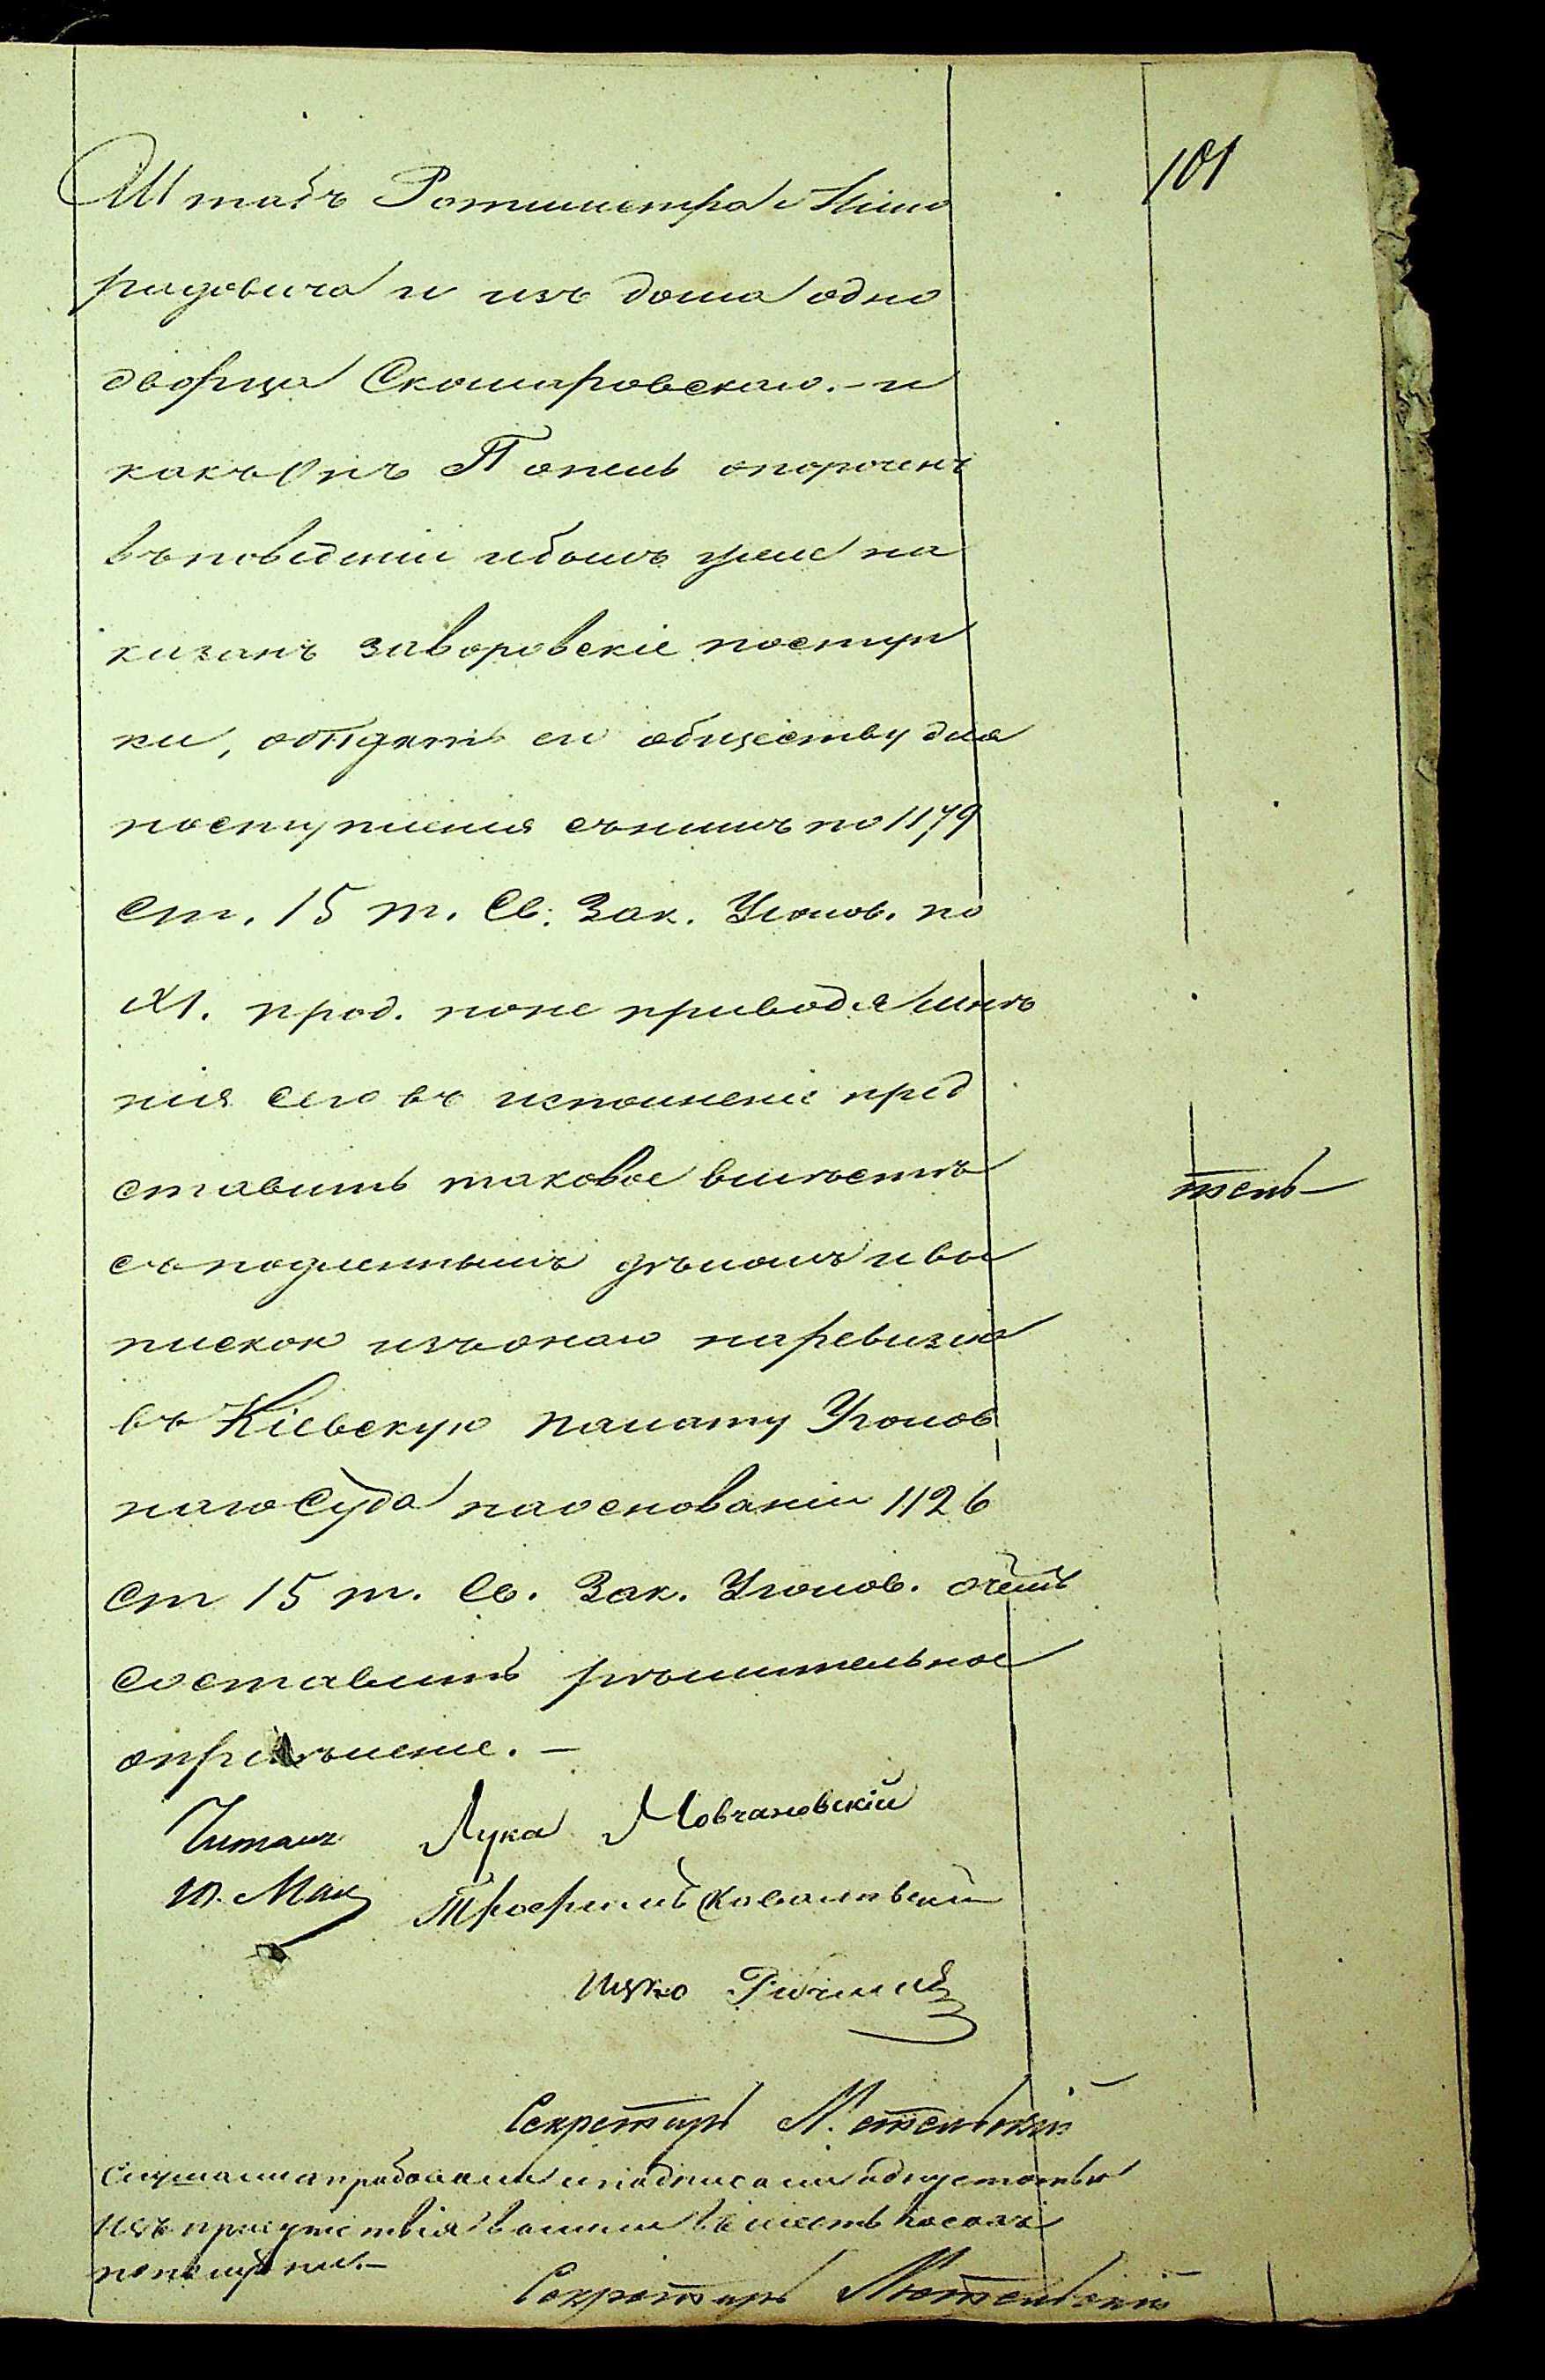 101
Штабъ Ротмистра
радовича и изъ дома одно
дворца Скомаровскаго. – и
какъ онъ Попель опороченъ
въповѣденіи ибылъ уже на
казанъ заворовскіе поступ
ки, отдать его обществу для
поступленія сънимъ по 1179
Ст. 15 т. Св. Зак. Уголов. по
XI. прод. но не приводя мнѣ
нія сего въ исполненіе пред
ставить таковое вмѣстѣ
съподленнымъ дѣломъ и вы
пискою изъонаго наревизію
въ Кіевскую палату Уголов
наго Суда наоснованіи 1126
Ст 15 т. Св. Зак. Уголов. очемъ
составить рѣшительное
опредѣленіе. –
Читалъ Лука Мовчановскій
Трофимъ Ковалевскій
Секретарь
Слушали апробовали иподписали
Изъ присутствія вышли въ шесть часовъ
пополудни. –
Секретарь